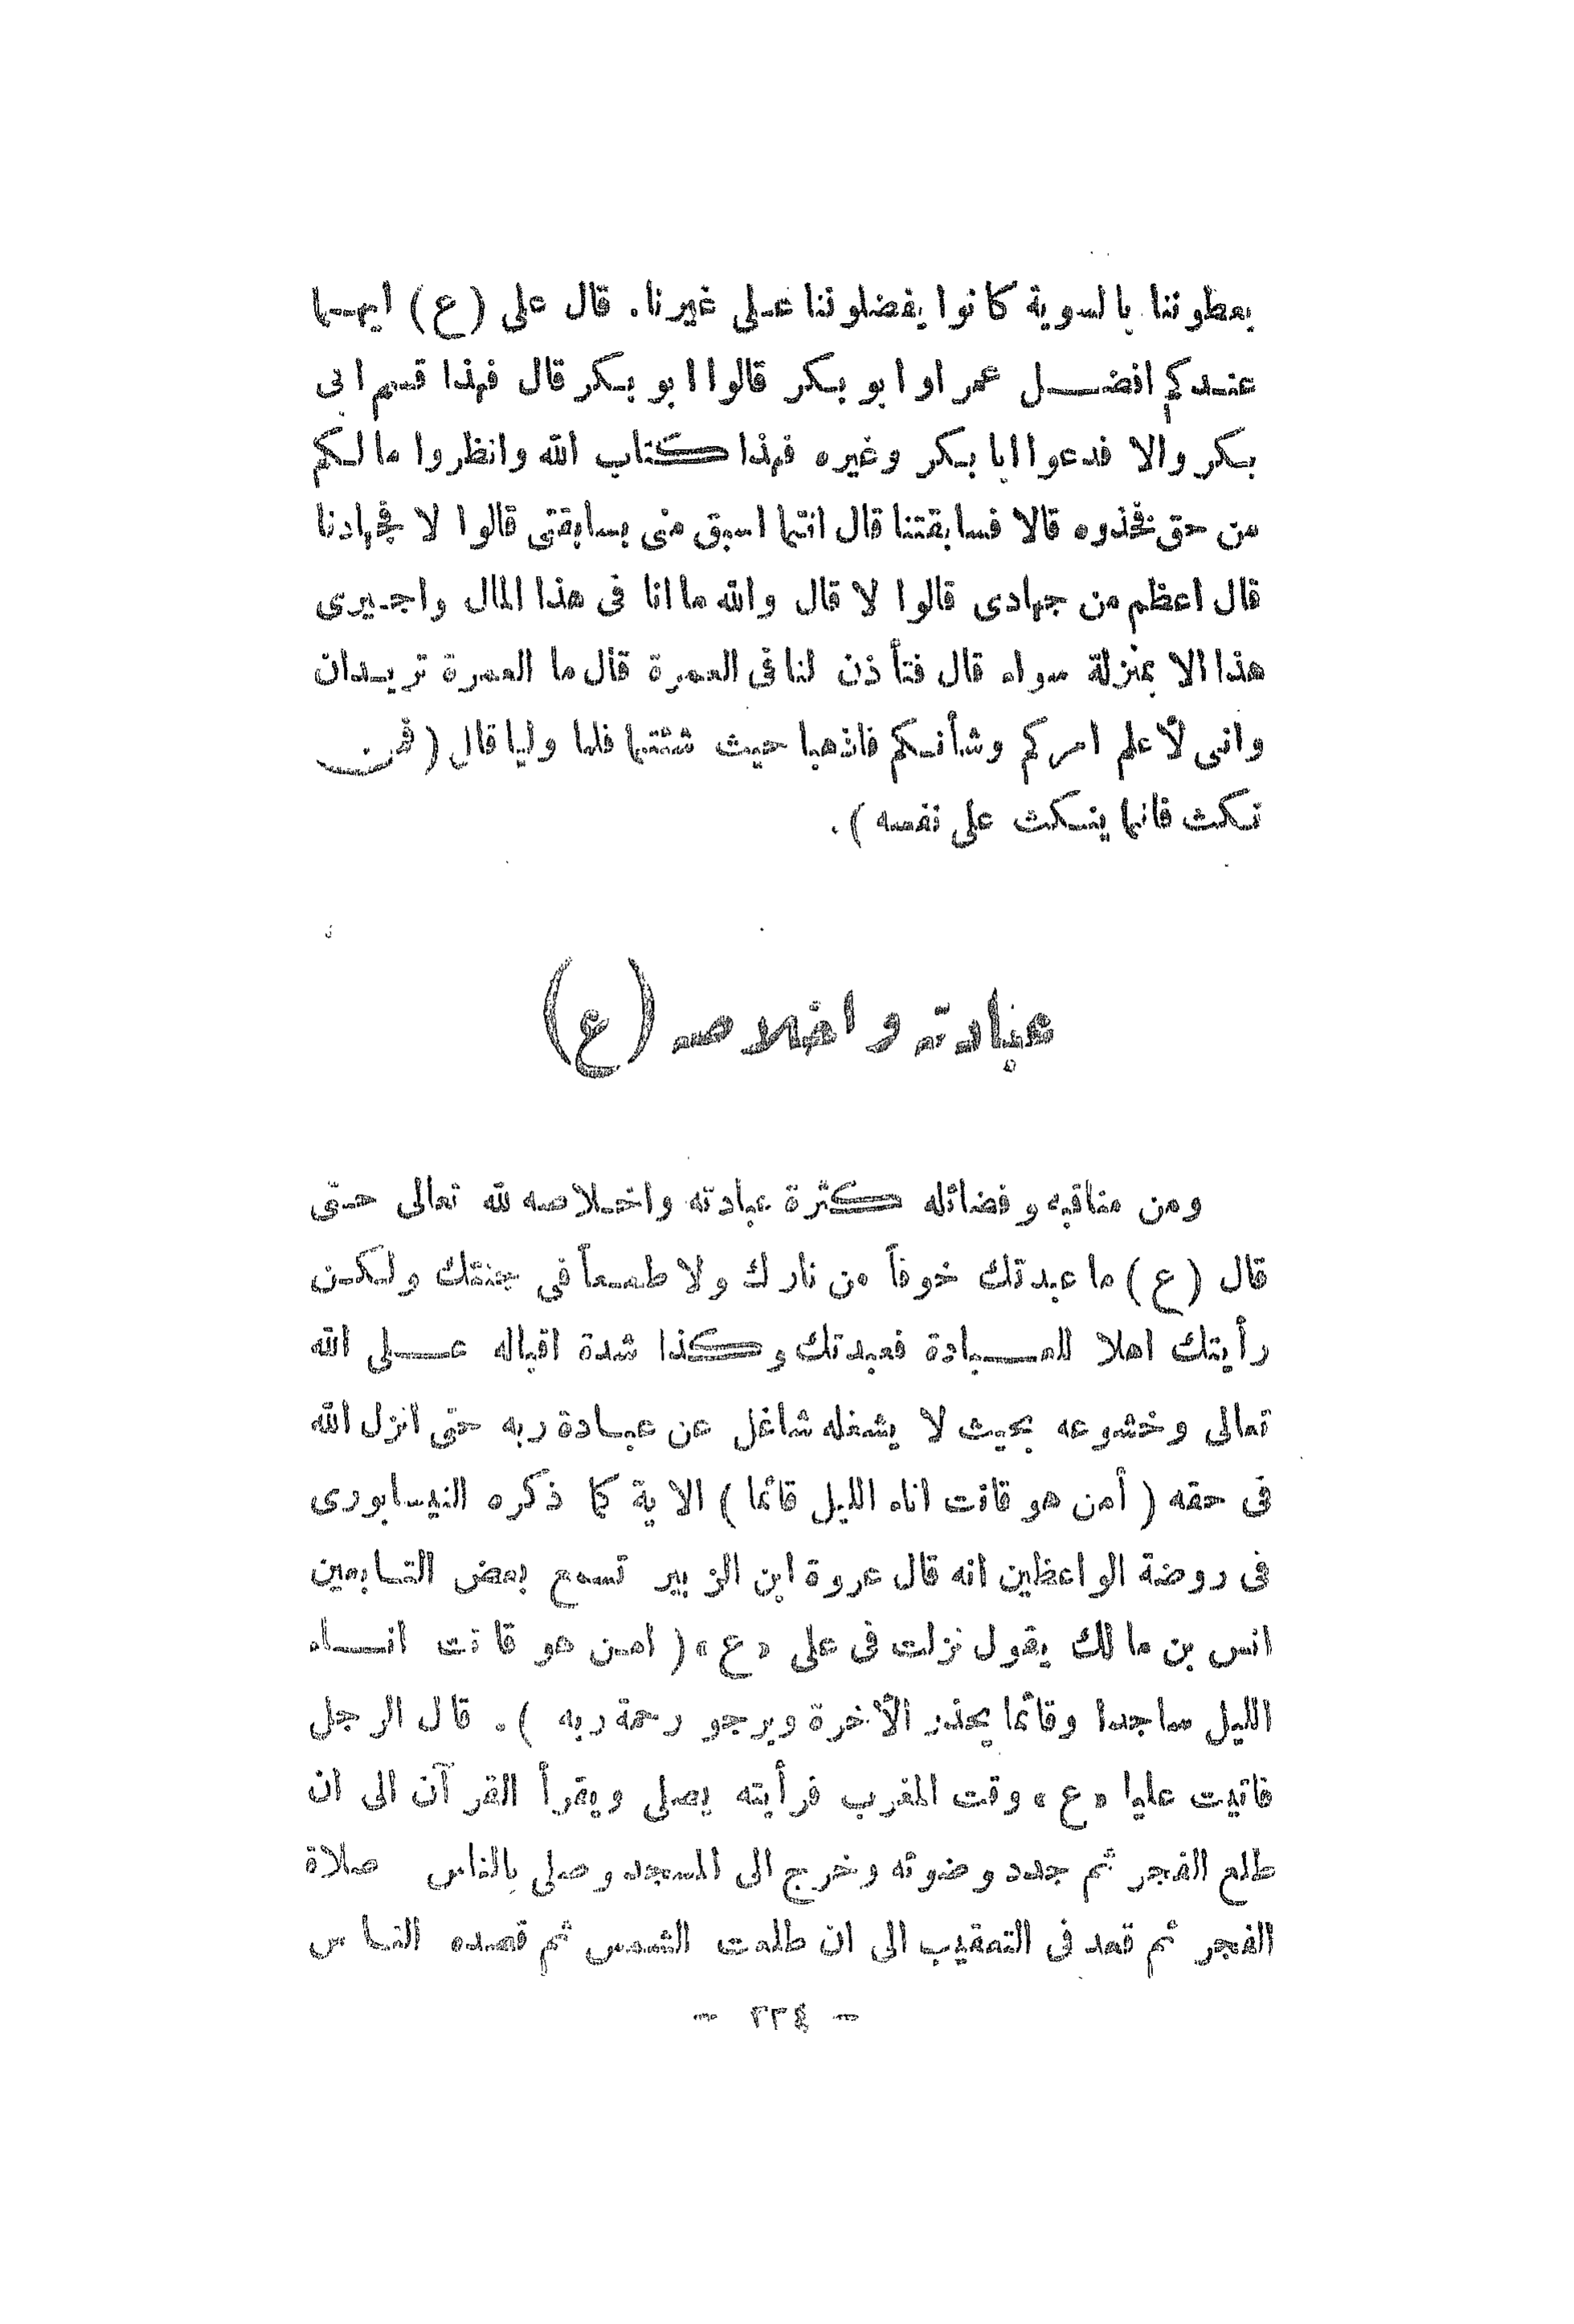 يعطوننا بالسوية كانوا يفضلوننا على غيرنا. قال على (ع) ايهما
عندكم افضل عمر او ابو بكر قالوا ابو بكر قال فهذا قسم ابى
بكر والا فدعوا ابا بكر وغيره فهذا كتاب الله وانظروا مالكم
من حق فخذوه قالا فسابقتنا قال انتما اسبق منى بسابقتى قالوا لا فجهادنا
قال اعظم من جهادى قالوا لا قال والله ما انا فى هذا المال واجيرى
هذا الا بمنزلة سواء قال فتأذن لنا فى العمرة قال ما العمرة تريدان
وانى لأعلم امركم وشأنكم فاذهبا حيث شئتما فلما وليا قال (فمن
نكث فانما ينكث على نفسه).
عبادته واخلاصه (ع)
ومن مناقبه وفضائله كثرة عبادته واخلاصه لله تعالى حتى
قال (ع) ما عبدتك خوفاً من نارك ولا طمعاً فى جنتك ولكن
رأيتك اهلا للعبادة فعبدتك وكذا شدة اقباله على الله
تعالى وخشوعه بحيث لا يشغله شاغل عن عبادة ربه حتى انزل الله
فى حقه (أمن هو قانت اناء الليل قائما) الاية كما ذكره النيسابورى
فى روضة الواعظين انه قال عروة ابن الزبير تسمع بعض التابعين
انس بن مالك يقول نزلت فى على «ع» (امن هو قانت اناء
الليل ساجدا وقائما يحذر الأخرة ويرجو رحمة ربه). قال الرجل
فاتيت عليا «ع» وقت المغرب فرأيته يصلى ويقرأ القرآن الى ان
طلع الفجر ثم جدد وضوئه وخرج الى المسجد وصلى بالناس صلاة
الفجر ثم قعد فى التعقيب الى ان طلعت الشمس ثم قصده الناس
- ٢٣٤ -